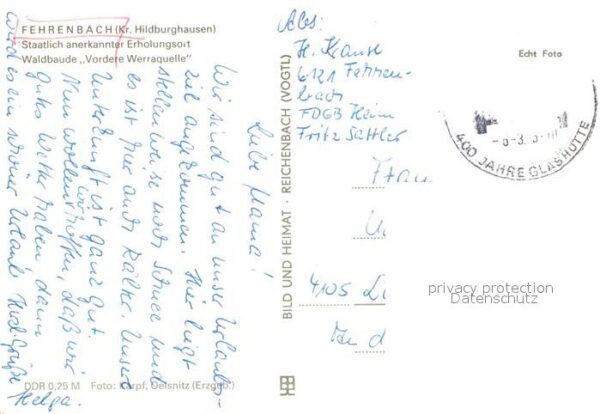 FEHRENBACH (Kr. Hildburghausen)
Staatlich anerkannter Erholungsort
Waldbaude „Vordere Werraquelle"
Liebe Mama!
Wir sind gut an unser Urlaubs-
ziel angekommen. Hier liegt
stellenweise noch Schnee und
es ist hier auch kälter. Unser
Unterkunft ist ganz gut.
Nun wollen wir hoffen, daß wir
gutes Wetter haben dann
wird es ein schöner Urlaub. Herzl. Grüße
Helga.
DDR 0,25 M Foto: Karpf, Oelsnitz (Erzgeb.)
BILD UND HEIMAT · REICHENBACH (VOGTL)
Abs:
H. Krause
6121 Fehren-
bach
FDGB Heim
Fritz Sattler
Echt Foto
400 JAHRE GLASHÜTTE
Frau
4105
privacy protection
Datenschutz